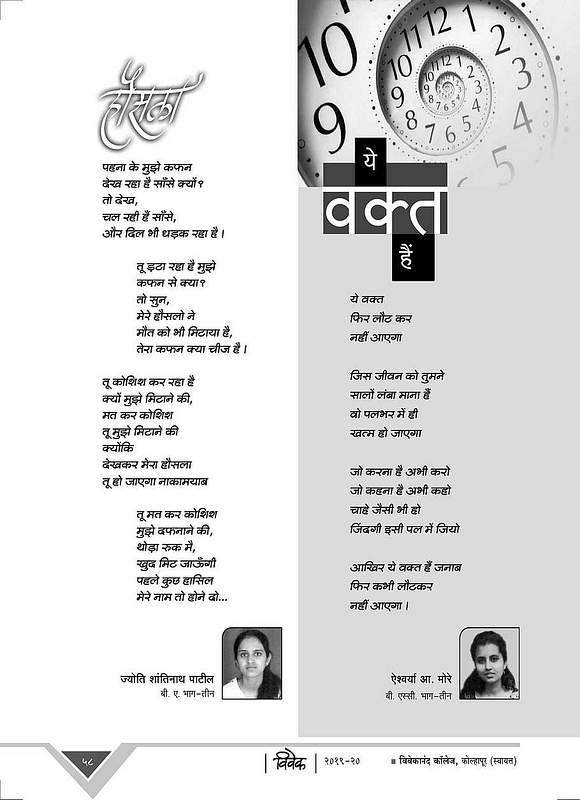 हौसला
पहना के मुझे कफन
देख रहा है साँसे क्यों?
तो देख,
चल रही हैं साँसे,
और दिल भी धड़क रहा है।
तू डटा रहा है मुझे
कफन से क्या?
तो सुन,
मेरे हौसलो ने
मौत को भी मिटाया है,
तेरा कफन क्या चीज है।
तू कोशिश कर रहा है
क्यों मुझे मिटाने की,
मत कर कोशिश
तू मुझे मिटाने की
क्योंकि
देखकर मेरा हौसला
तू हो जाएगा नाकामयाब
तू मत कर कोशिश
मुझे दफनाने की,
थोड़ा रुक मै,
खुद मिट जाऊँगी
पहले कुछ हासिल
मेरे नाम तो होने दो...
ज्योति शांतिनाथ पाटील
बी. ए. भाग-तीन
10 11 12 1 2 3 4 5 6 7 8 9
ये
वक्त
हैं
ये वक्त
फिर लौट कर
नहीं आएगा
जिस जीवन को तुमने
सालों लंबा माना हैं
वो पलभर में ही
खत्म हो जाएगा
जो करना है अभी करो
जो कहना है अभी कहो
चाहे जैसी भी हो
जिंदगी इसी पल में जियो
आखिर ये वक्त हैं जनाब
फिर कभी लौटकर
नहीं आएगा।
ऐश्वर्या आ. मोरे
बी. एस्सी. भाग-तीन
५८
विवेक
२०१९-२०
विवेकानंद कॉलेज, कोल्हापूर (स्वायत्त)